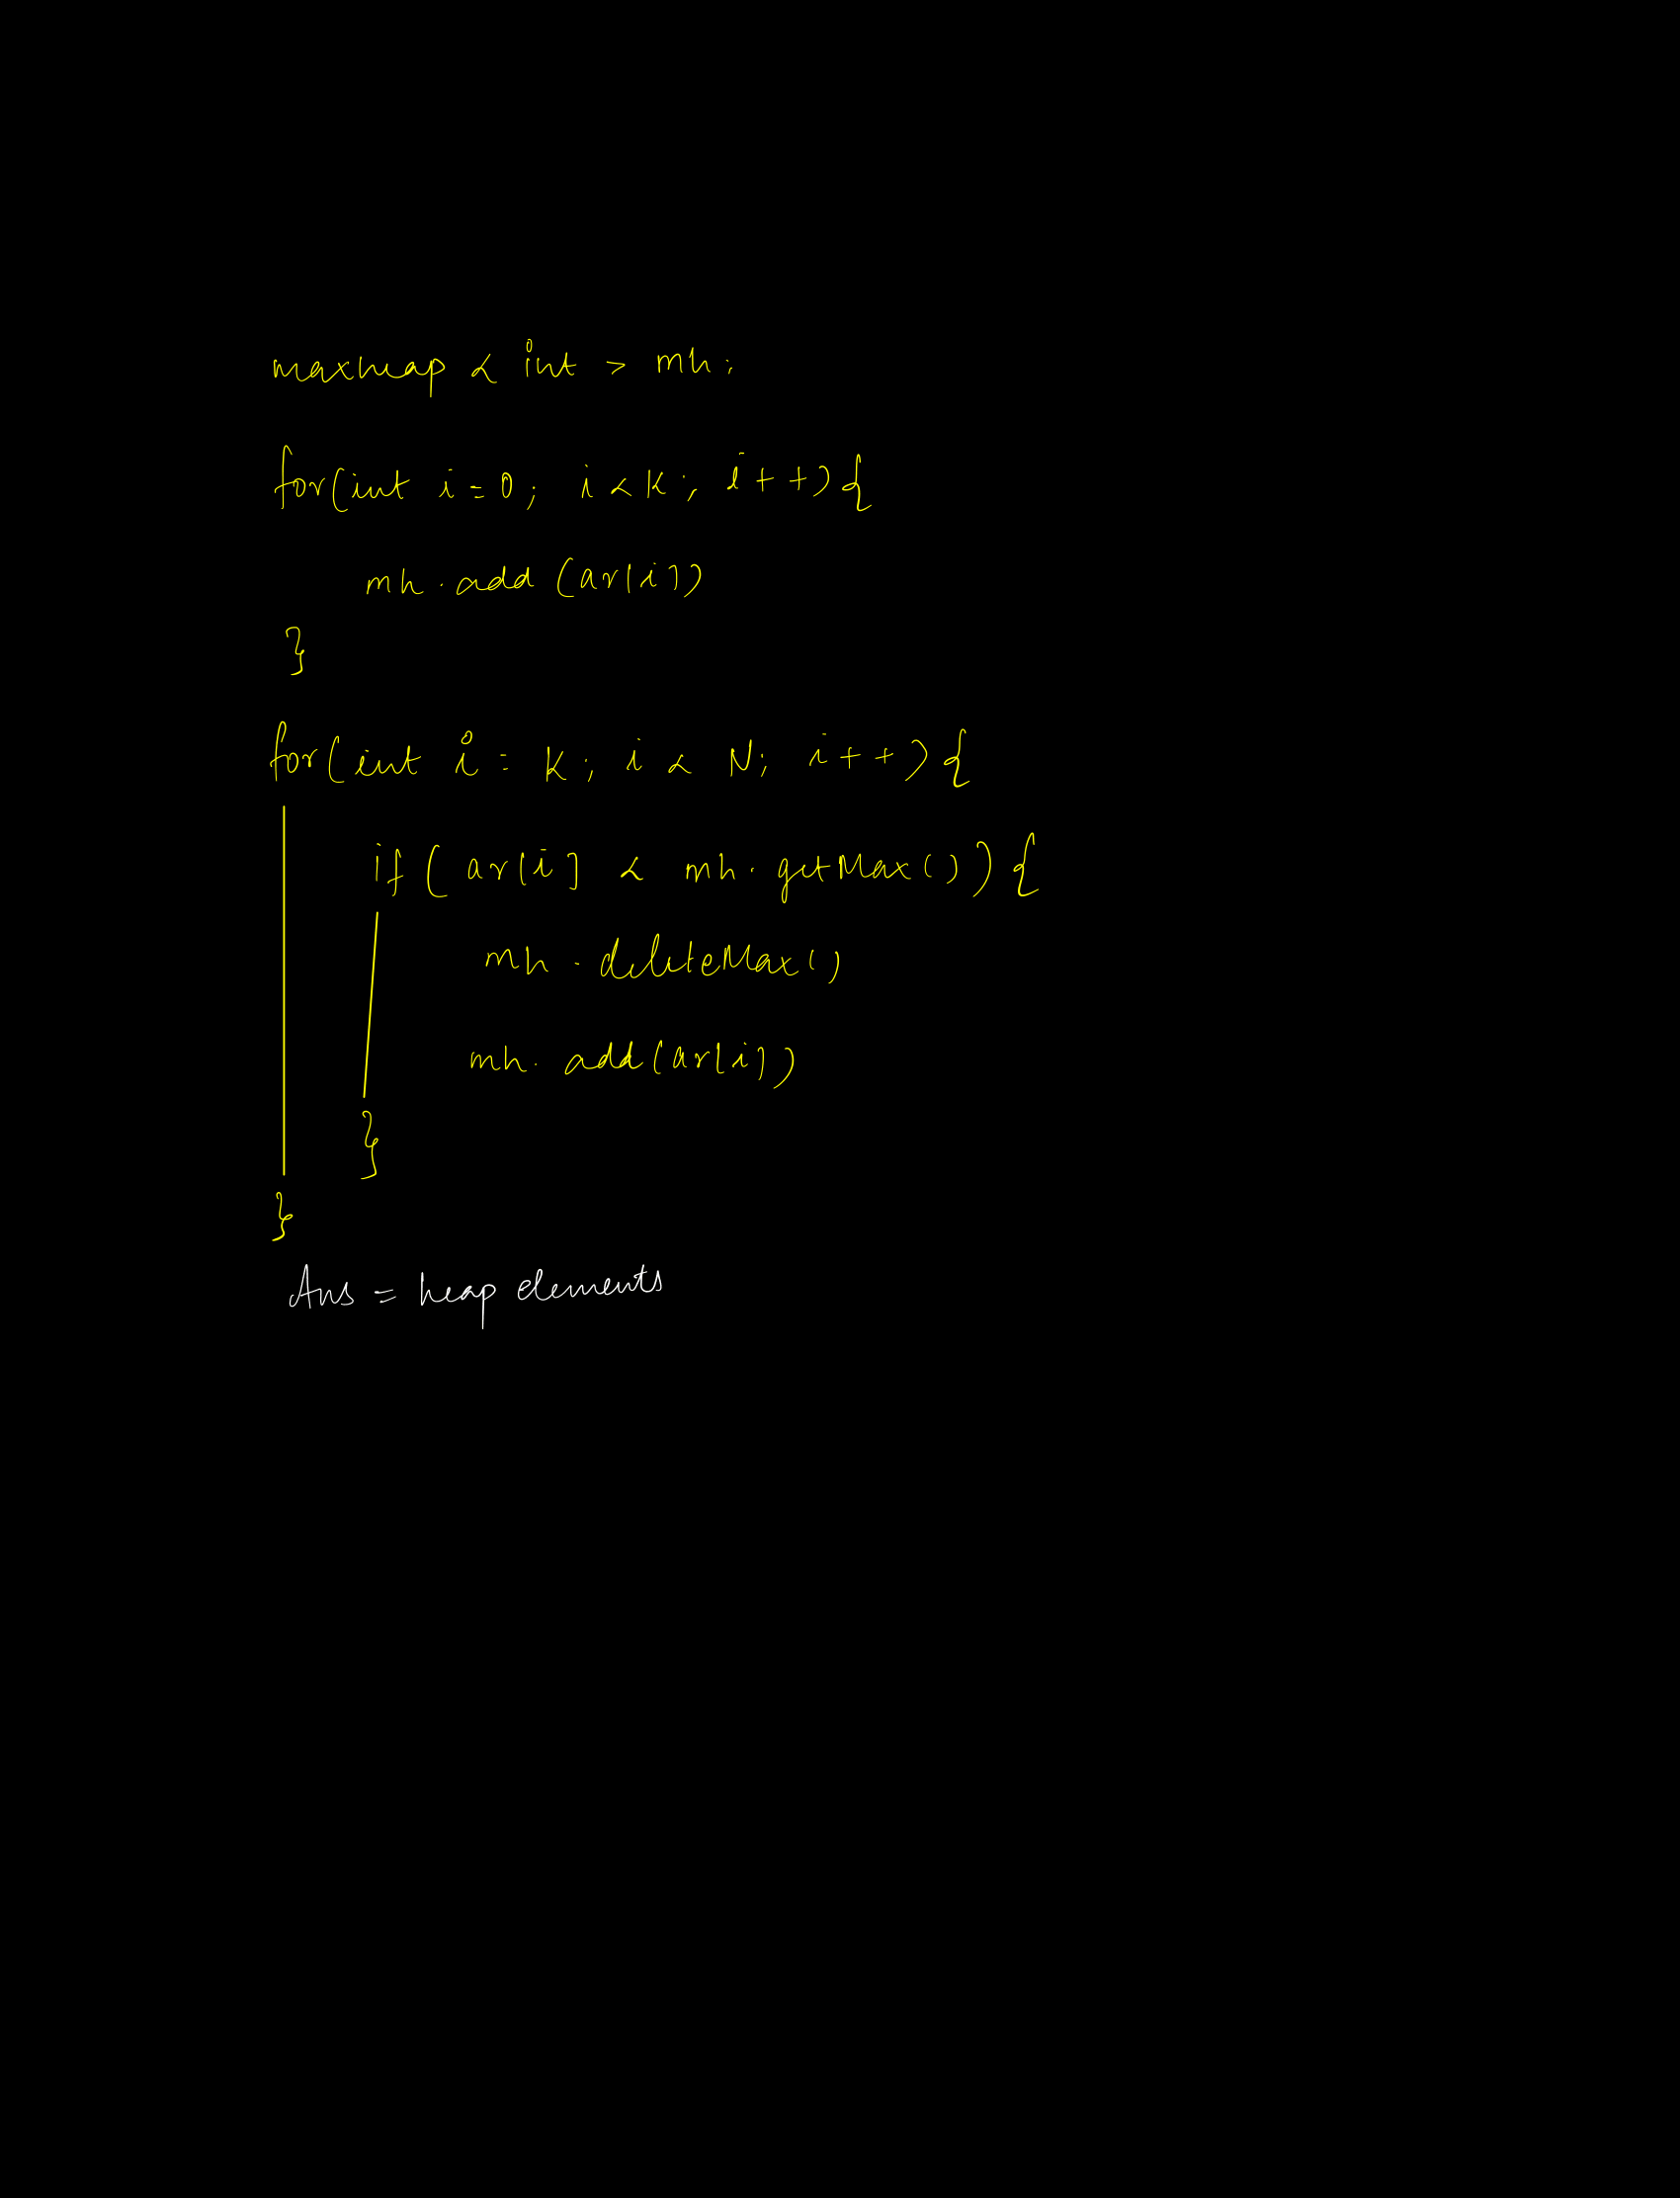 maxheap < int > mh;
for(int i=0; i<K; i++){
mh.add(ar[i])
}
for(int i=K; i<N; i++){
if(ar[i] < mh.getMax()){
mh.deleteMax()
mh.add(ar[i])
}
}
Ans = heap elements